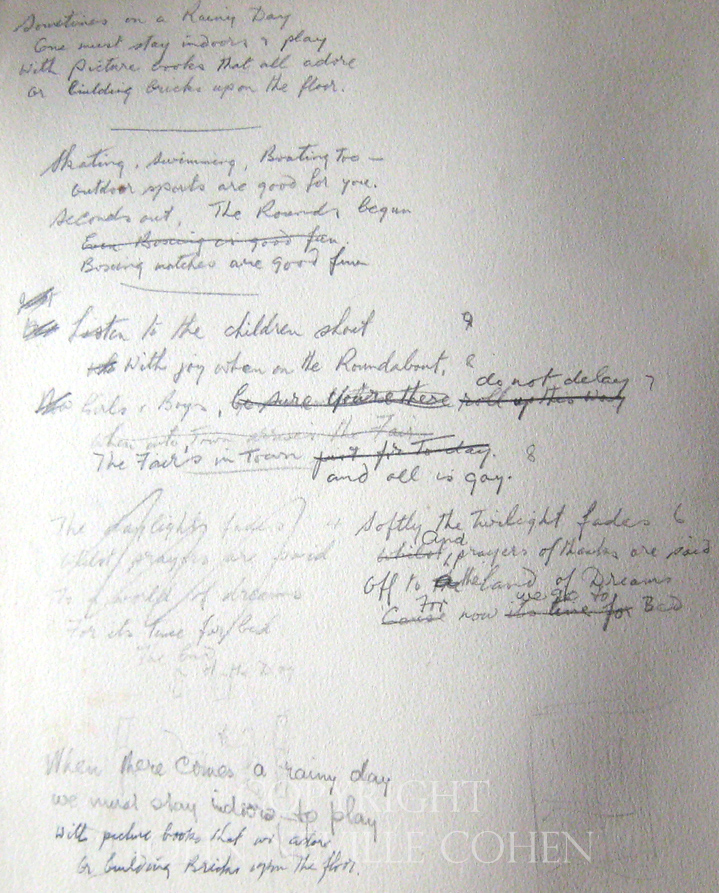 Sometimes on a Rainy Day
One must stay indoors & play
With picture books that all adore
or building bricks upon the floor.
Skating, swimming, Boating too —
outdoor sports are good for you.
Seconds out, The Rounds begun
Even Boxing is good fun.
Boxing matches are good fun
Listen to the children shout 9
With joy when on the Roundabout, 8
do not delay 7
Girls & Boys, be sure you're there roll up this way
when into Town arrives the Fair
The Fair's in Town just for Today. 8
and all is gay.
The daylight fades
whilst prayers are said
To a world of dreams
For its time for bed
The End
of the Day
Softly the twilight fades 6
and
whilst, prayers of thanks are said
Off to the land of Dreams
For we go to
Cause now its time for Bed
When there comes a rainy day
we must stay indoors to play
With picture books that we adore
Or building Bricks upon the floor.
COPYRIGHT
MILLE COHEN